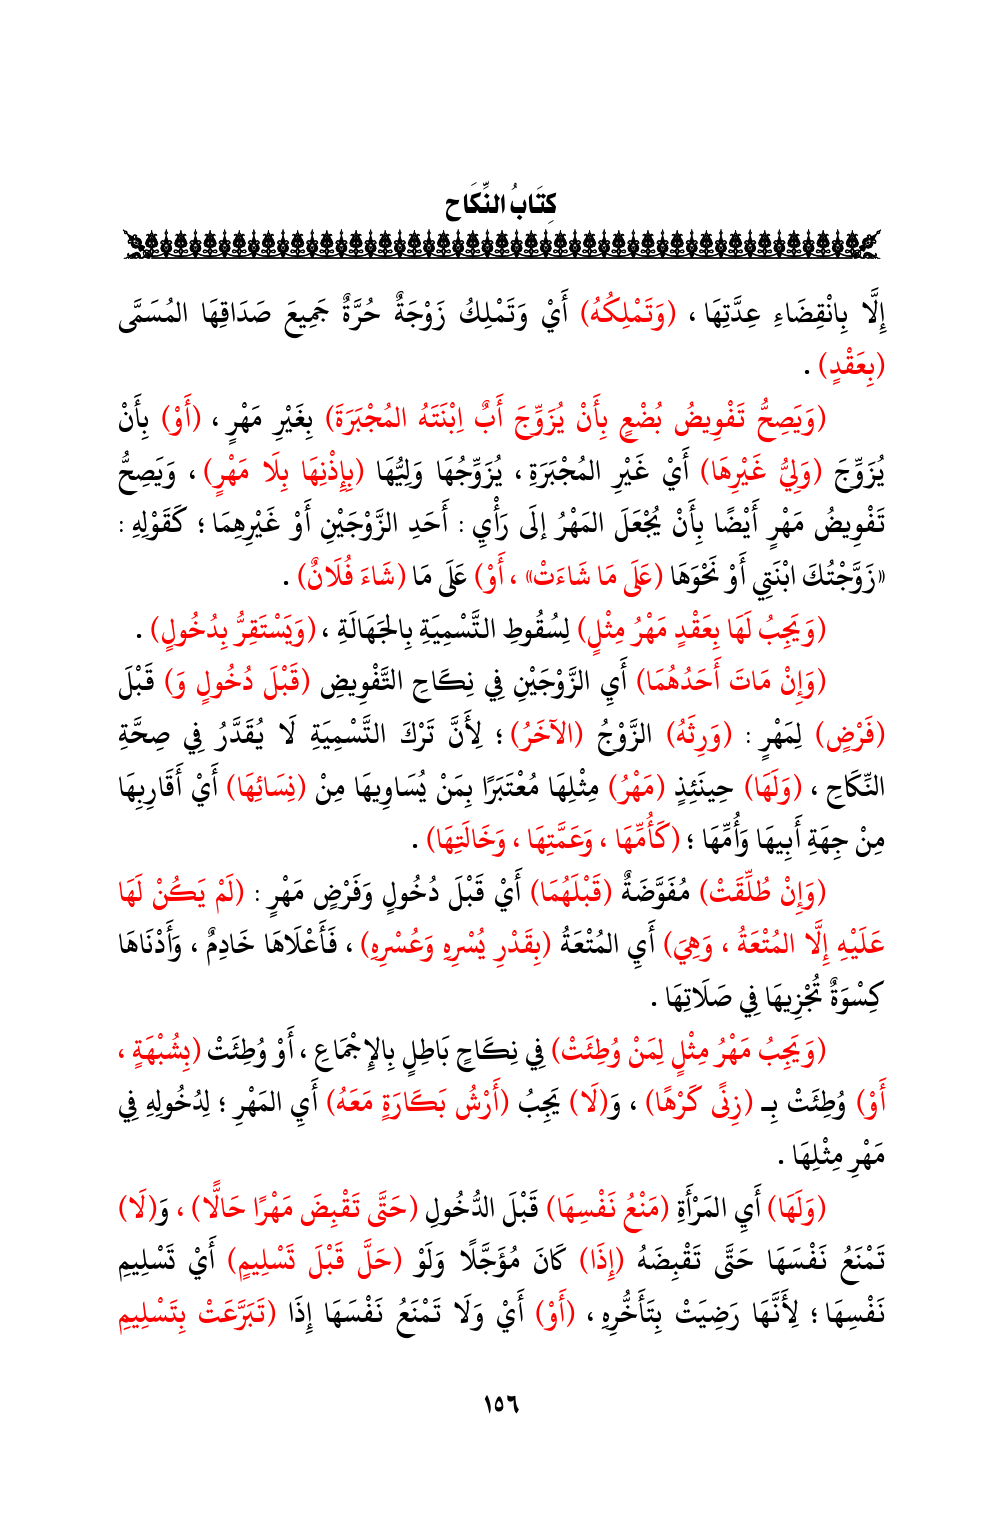 كِتَابُ النِّكَاح
إِلَّا بِانْقِضَاءِ عِدَّتِهَا ، (وَتَمْلِكُهُ) أَيْ وَتَمْلِكُ زَوْجَةٌ حُرَّةٌ جَمِيعَ صَدَاقِهَا المُسَمَّى
(بِعَقْدٍ) .
(وَيَصِحُّ تَفْوِيضُ بُضْعٍ بِأَنْ يُزَوِّجَ أَبٌ اِبْنَتَهُ المُجْبَرَةَ) بِغَيْرِ مَهْرٍ ، (أَوْ) بِأَنْ
يُزَوِّجَ (وَلِيُّ غَيْرِهَا) أَيْ غَيْرِ المُجْبَرَةِ ، يُزَوِّجُهَا وَلِيُّهَا (بِإِذْنِهَا بِلَا مَهْرٍ) ، وَيَصِحُّ
تَفْوِيضُ مَهْرٍ أَيْضًا بِأَنْ يُجْعَلَ المَهْرُ إلَى رَأْيِ : أَحَدِ الزَّوْجَيْنِ أَوْ غَيْرِهِمَا ؛ كَقَوْلِهِ :
«زَوَّجْتُكَ ابْنَتِي أَوْ نَحْوَهَا (عَلَى مَا شَاءَتْ» ، أَوْ) عَلَى مَا (شَاءَ فُلَانٌ) .
(وَيَجِبُ لَهَا بِعَقْدٍ مَهْرُ مِثْلٍ) لِسُقُوطِ التَّسْمِيَةِ بِالجَهَالَةِ ، (وَيَسْتَقِرُّ بِدُخُولٍ) .
(وَإِنْ مَاتَ أَحَدُهُمَا) أَيِ الزَّوْجَيْنِ فِي نِكَاحِ التَّفْوِيضِ (قَبْلَ دُخُولٍ وَ) قَبْلَ
(فَرْضٍ) لِمَهْرٍ : (وَرِثَهُ) الزَّوْجُ (الآخَرُ) ؛ لِأَنَّ تَرْكَ التَّسْمِيَةِ لَا يُقَدَّرُ فِي صِحَّةِ
النِّكَاحِ ، (وَلَهَا) حِينَئِذٍ (مَهْرُ) مِثْلِهَا مُعْتَبَرًا بِمَنْ يُسَاوِيهَا مِنْ (نِسَائِهَا) أَيْ أَقَارِبِهَا
مِنْ جِهَةِ أَبِيهَا وَأُمِّهَا ؛ (كَأُمِّهَا ، وَعَمَّتِهَا ، وَخَالَتِهَا) .
(وَإِنْ طُلِّقَتْ) مُفَوَّضَةٌ (قَبْلَهُمَا) أَيْ قَبْلَ دُخُولٍ وَفَرْضِ مَهْرٍ : (لَمْ يَكُنْ لَهَا
عَلَيْهِ إِلَّا المُتْعَةُ ، وَهِيَ) أَيِ المُتْعَةُ (بِقَدْرِ يُسْرِهِ وَعُسْرِهِ) ، فَأَعْلَاهَا خَادِمٌ ، وَأَدْنَاهَا
كِسْوَةٌ تُجْزِيهَا فِي صَلَاتِهَا .
(وَيَجِبُ مَهْرُ مِثْلٍ لِمَنْ وُطِئَتْ) فِي نِكَاحٍ بَاطِلٍ بِالإِجْمَاعِ ، أَوْ وُطِئَتْ (بِشُبْهَةٍ ،
أَوْ) وُطِئَتْ بِـ (زِنًى كَرْهًا) ، وَ(لَا) يَجِبُ (أَرْشُ بَكَارَةٍ مَعَهُ) أَيِ المَهْرِ ؛ لِدُخُولِهِ فِي
مَهْرِ مِثْلِهَا .
(وَلَهَا) أَيِ المَرْأَةِ (مَنْعُ نَفْسِهَا) قَبْلَ الدُّخُولِ (حَتَّى تَقْبِضَ مَهْرًا حَالًّا) ، وَ(لَا)
تَمْنَعُ نَفْسَهَا حَتَّى تَقْبِضَهُ (إِذَا) كَانَ مُؤَجَّلًا وَلَوْ (حَلَّ قَبْلَ تَسْلِيمٍ) أَيْ تَسْلِيمِ
نَفْسِهَا ؛ لِأَنَّهَا رَضِيَتْ بِتَأَخُّرِهِ ، (أَوْ) أَيْ وَلَا تَمْنَعُ نَفْسَهَا إِذَا (تَبَرَّعَتْ بِتَسْلِيمِ
١٥٦